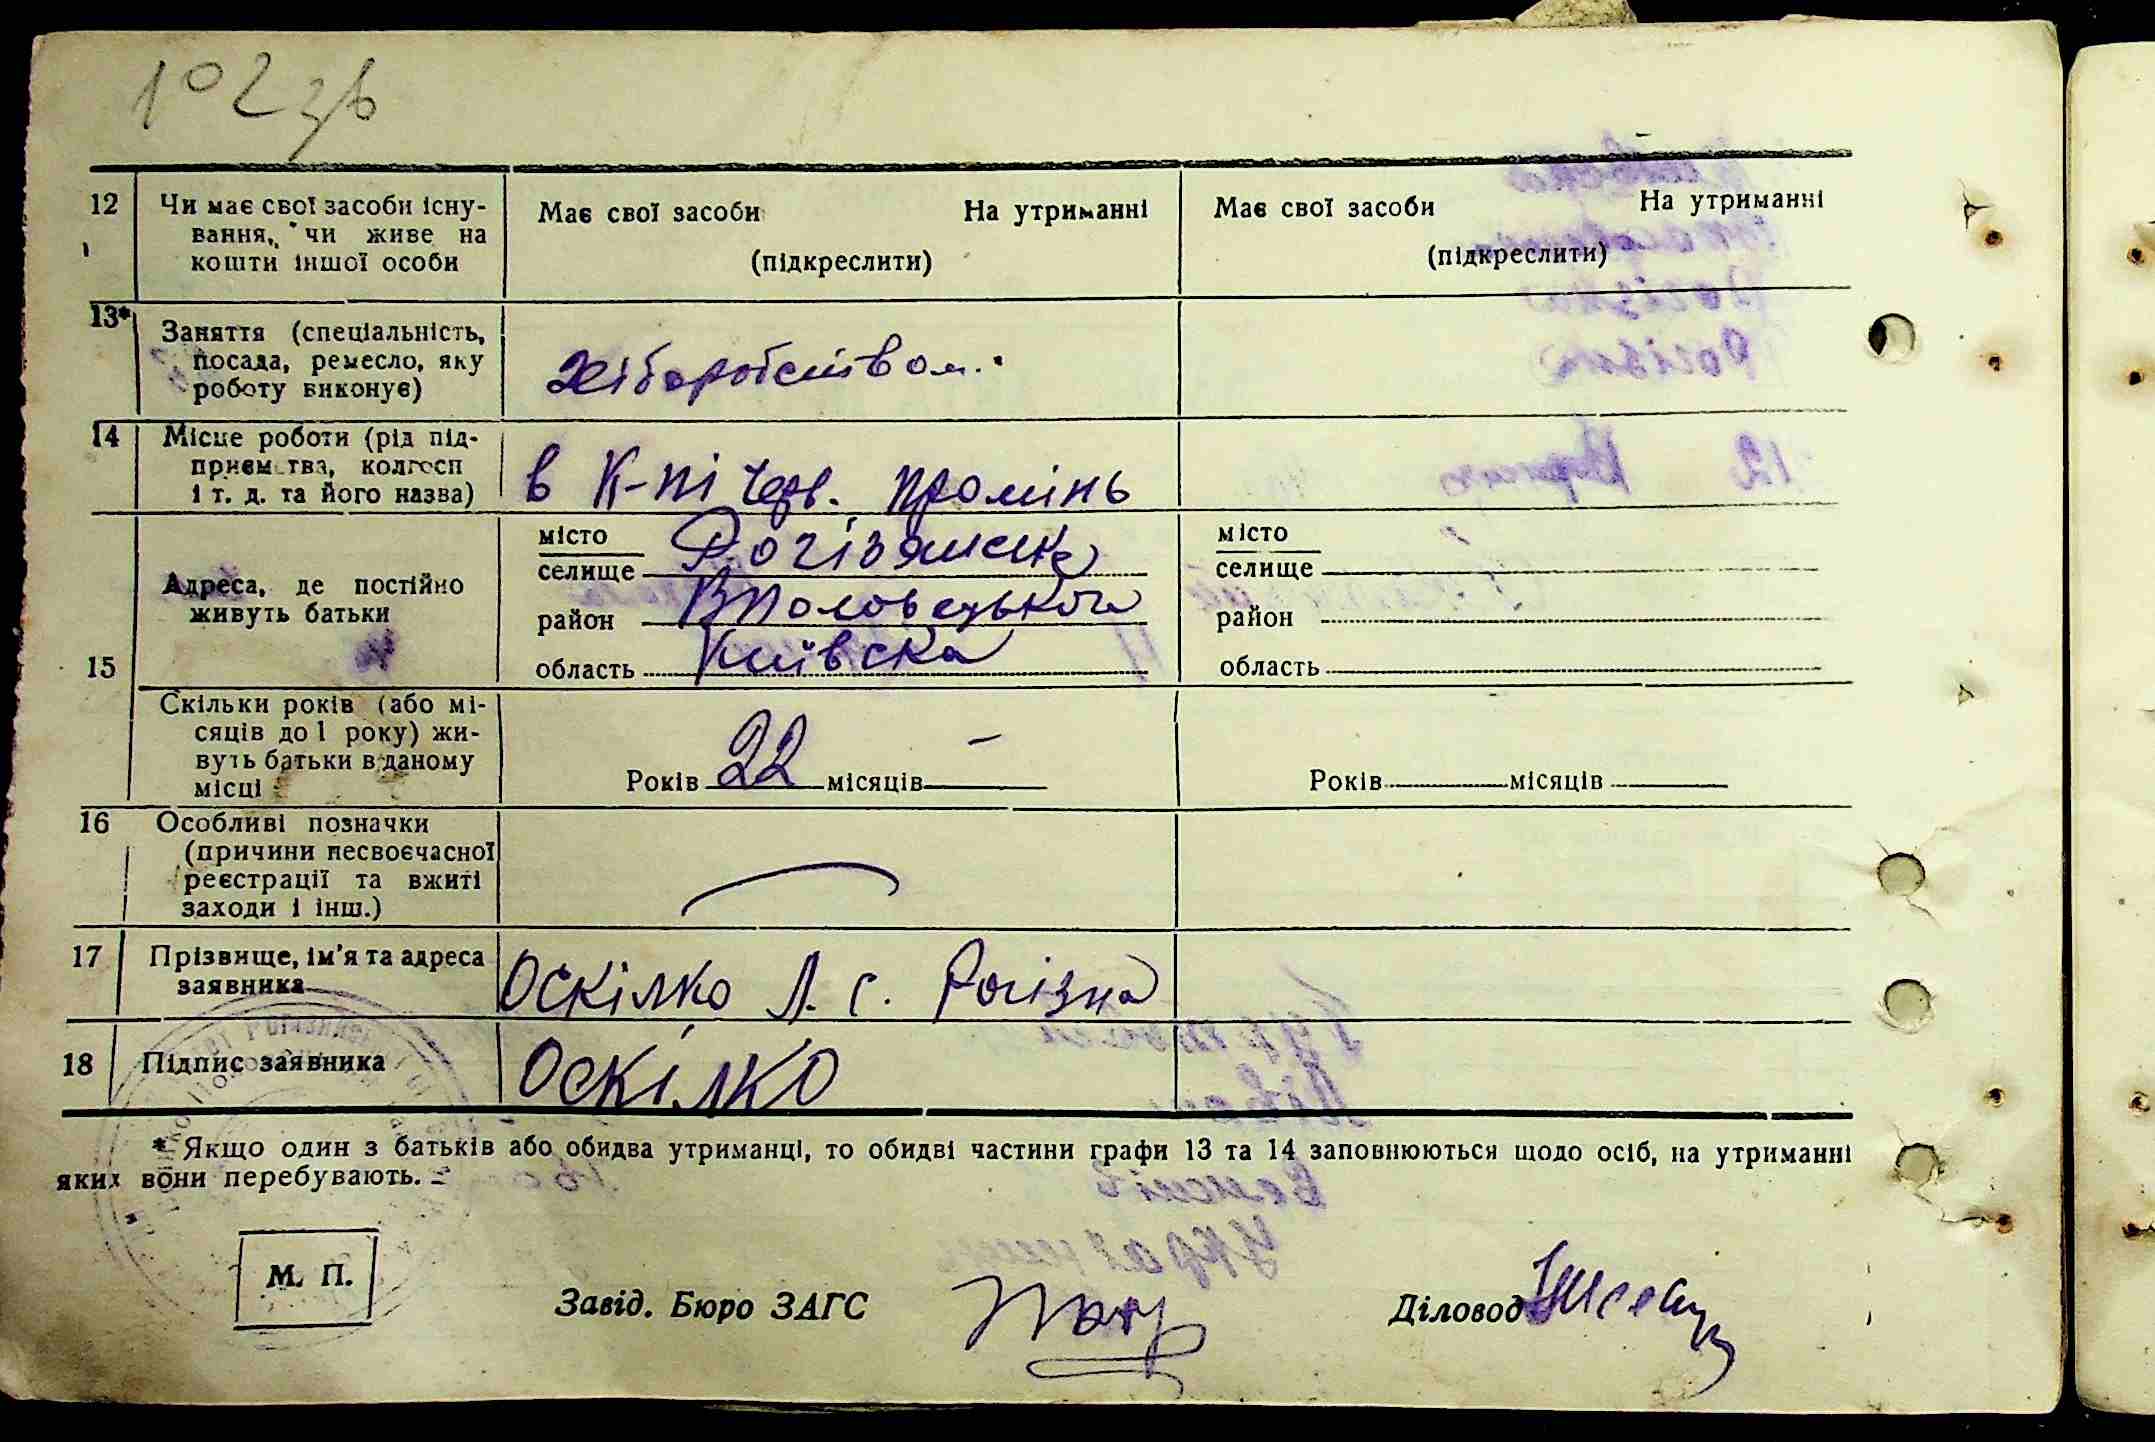 102 зв
12 Чи має свої засоби існу- Має свої засоби На утриманні Має свої засоби На утриманні
вання, чи живе на (підкреслити) (підкреслити)
кошти іншої особи
13* Заняття (спеціальність,
посада, ремесло, яку хліборобством.
роботу виконує)
14 Місце роботи (рід під-
приємства, колгосп в К-пі Черв. Промінь
і т. д. та його назва)
15 Адреса, де постійно
живуть батьки
місто місто
селище селище
район район
область Київська область
Скільки років (або мі-
сяців до 1 року) жи-
вуть батьки в даному Років 22 місяців — Років місяців
місці
16 Особливі позначки
(причини несвоєчасної
реєстрації та вжиті
заходи і інш.)
17 Прізвище, ім'я та адреса Оскілко Л. с. Рогізна
заявника
18 Підпис заявника Оскілко
* Якщо один з батьків або обидва утриманці, то обидві частини графи 13 та 14 заповнюються щодо осіб, на утриманні
яких вони перебувають.
М. П.
Завід. Бюро ЗАГС Діловод